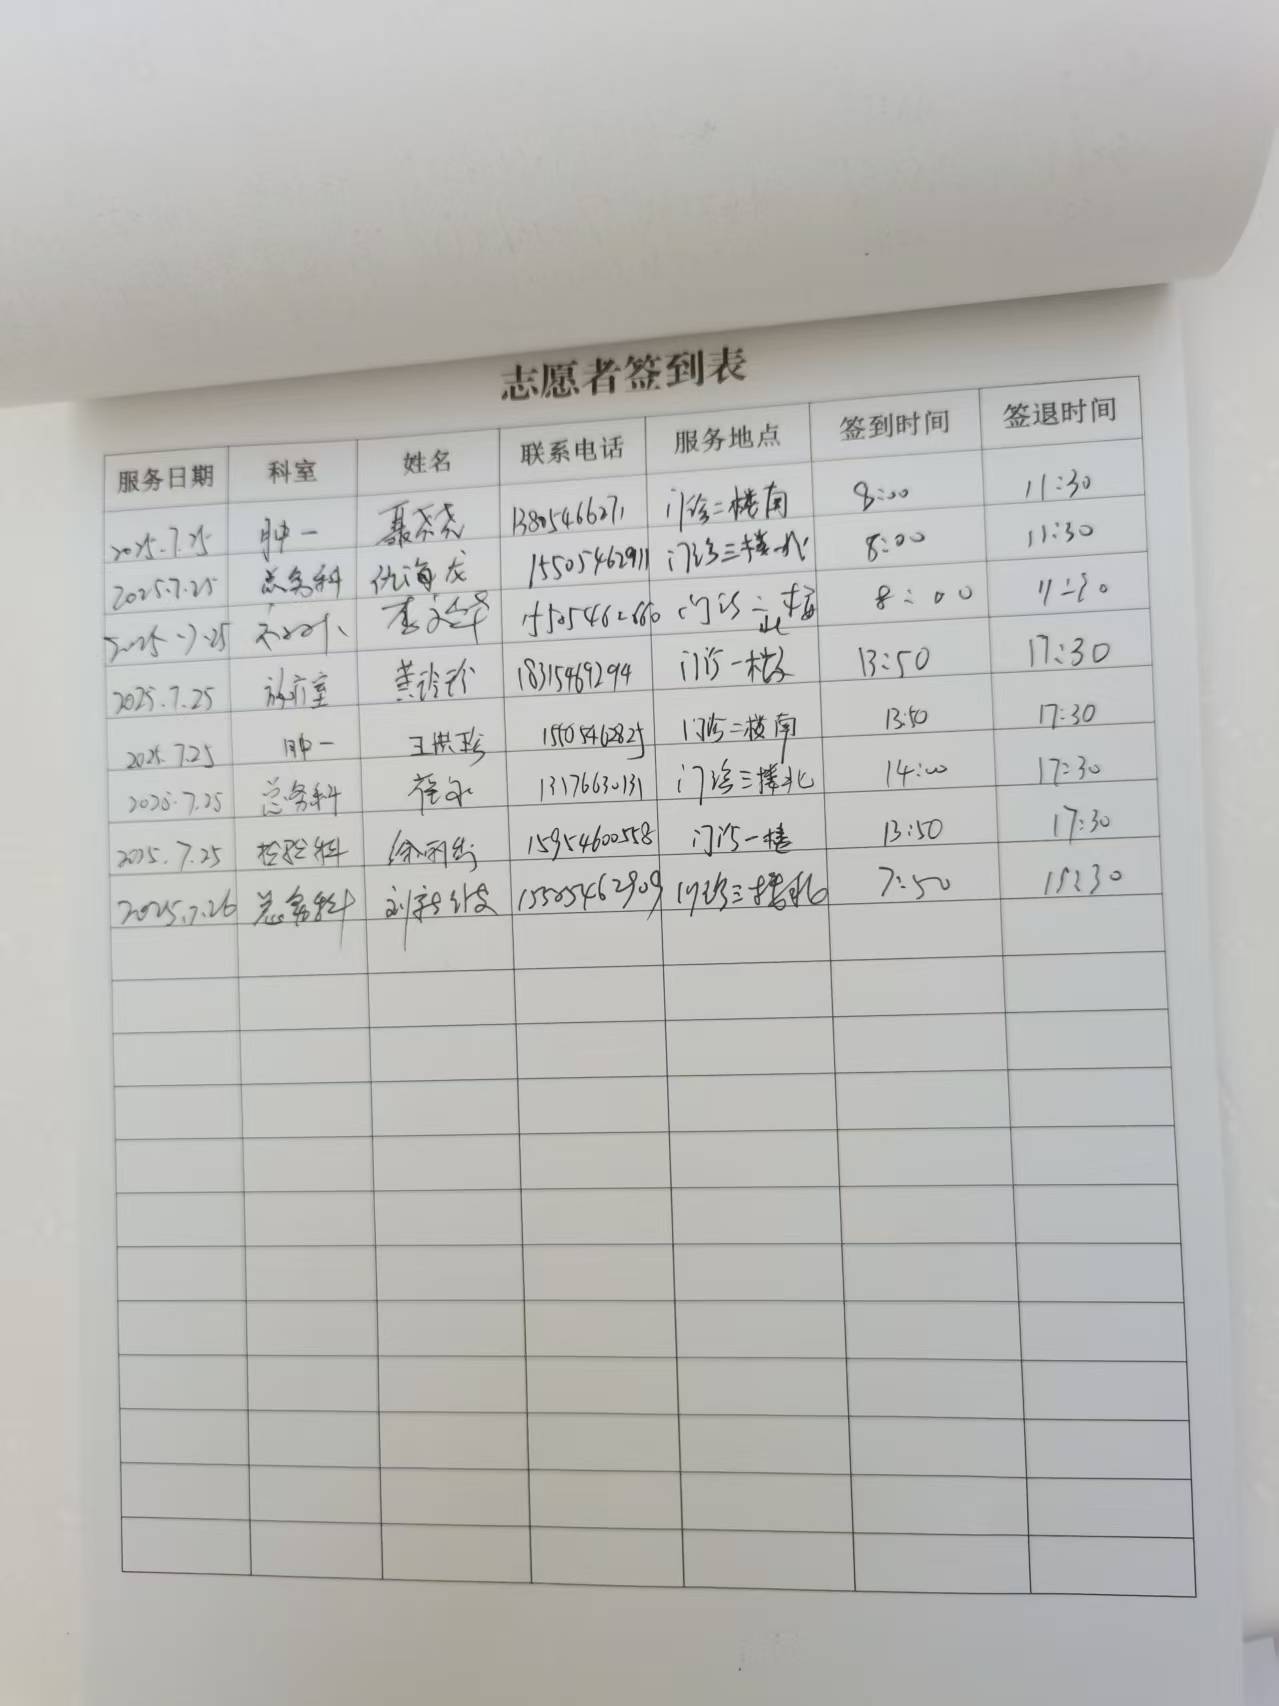 志愿者签到表
服务日期 科室 姓名 联系电话 服务地点 签到时间 签退时间
2025.7.25 肿一 聂尧尧 门诊二楼南 8:00 11:30
2025.7.25 总务科 仇海龙 15505462911 门诊三楼北 8:00 11:30
2025.7.25 门诊二楼北 8:00 11:30
2025.7.25 放疗室 18315469294 门诊一楼 13:50 17:30
2025.7.25 肿一 王洪珍 15505462825 门诊二楼南 13:50 17:30
2025.7.25 总务科 门诊三楼北 14:00 17:30
2025.7.25 检验科 15954600558 门诊一楼 13:50 17:30
2025.7.26 总务科 15505462909 门诊三楼北 7:50 11:30